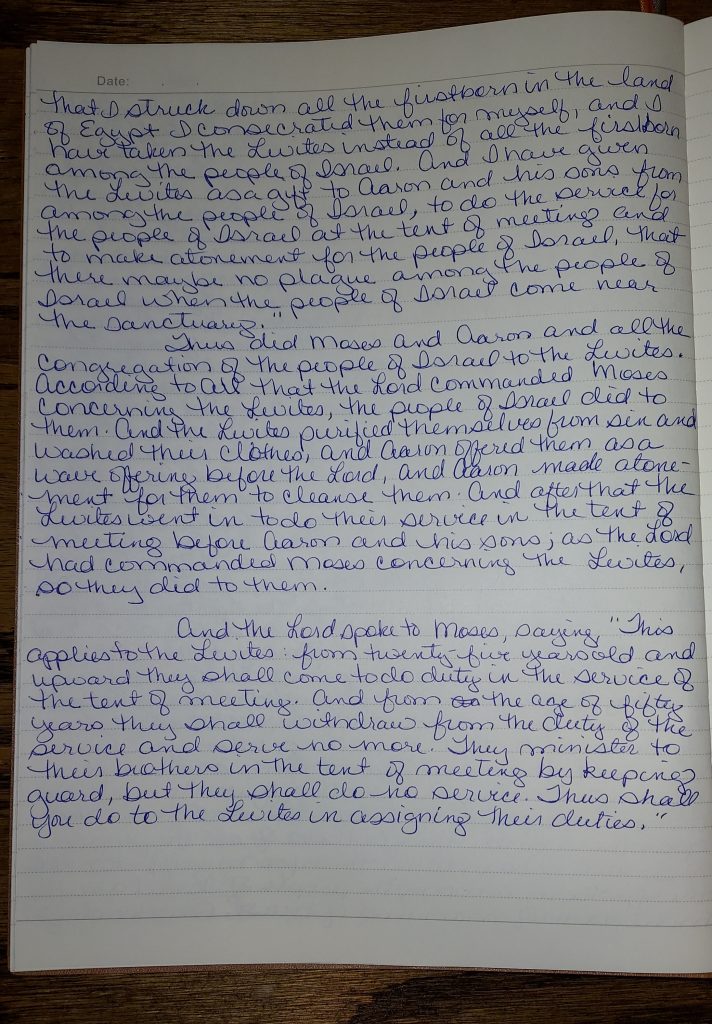 Date:
that I struck down all the firstborn in the land
of Egypt I consecrated them for myself, and I
have taken the Levites instead of all the firstborn
among the people of Israel. And I have given
the Levites as a gift to Aaron and his sons from
among the people of Israel, to do the service for
the people of Israel at the tent of meeting and
to make atonement for the people of Israel, that
there may be no plague among the people of
Israel when the people of Israel come near
the sanctuary."
Thus did Moses and Aaron and all the
congregation of the people of Israel to the Levites.
According to all that the Lord commanded Moses
concerning the Levites, the people of Israel did to
them. And the Levites purified themselves from sin and
washed their clothes, and Aaron offered them as a
wave offering before the Lord, and Aaron made atone-
ment for them to cleanse them. And after that the
Levites went in to do their service in the tent of
meeting before Aaron and his sons; as the Lord
had commanded Moses concerning the Levites,
so they did to them.
And the Lord spoke to Moses, saying, "This
applies to the Levites: from twenty-five years old and
upward they shall come to do duty in the service of
the tent of meeting. And from the age of fifty
years they shall withdraw from the duty of the
service and serve no more. They minister to
their brothers in the tent of meeting by keeping
guard, but they shall do no service. Thus shall
you do to the Levites in assigning their duties."